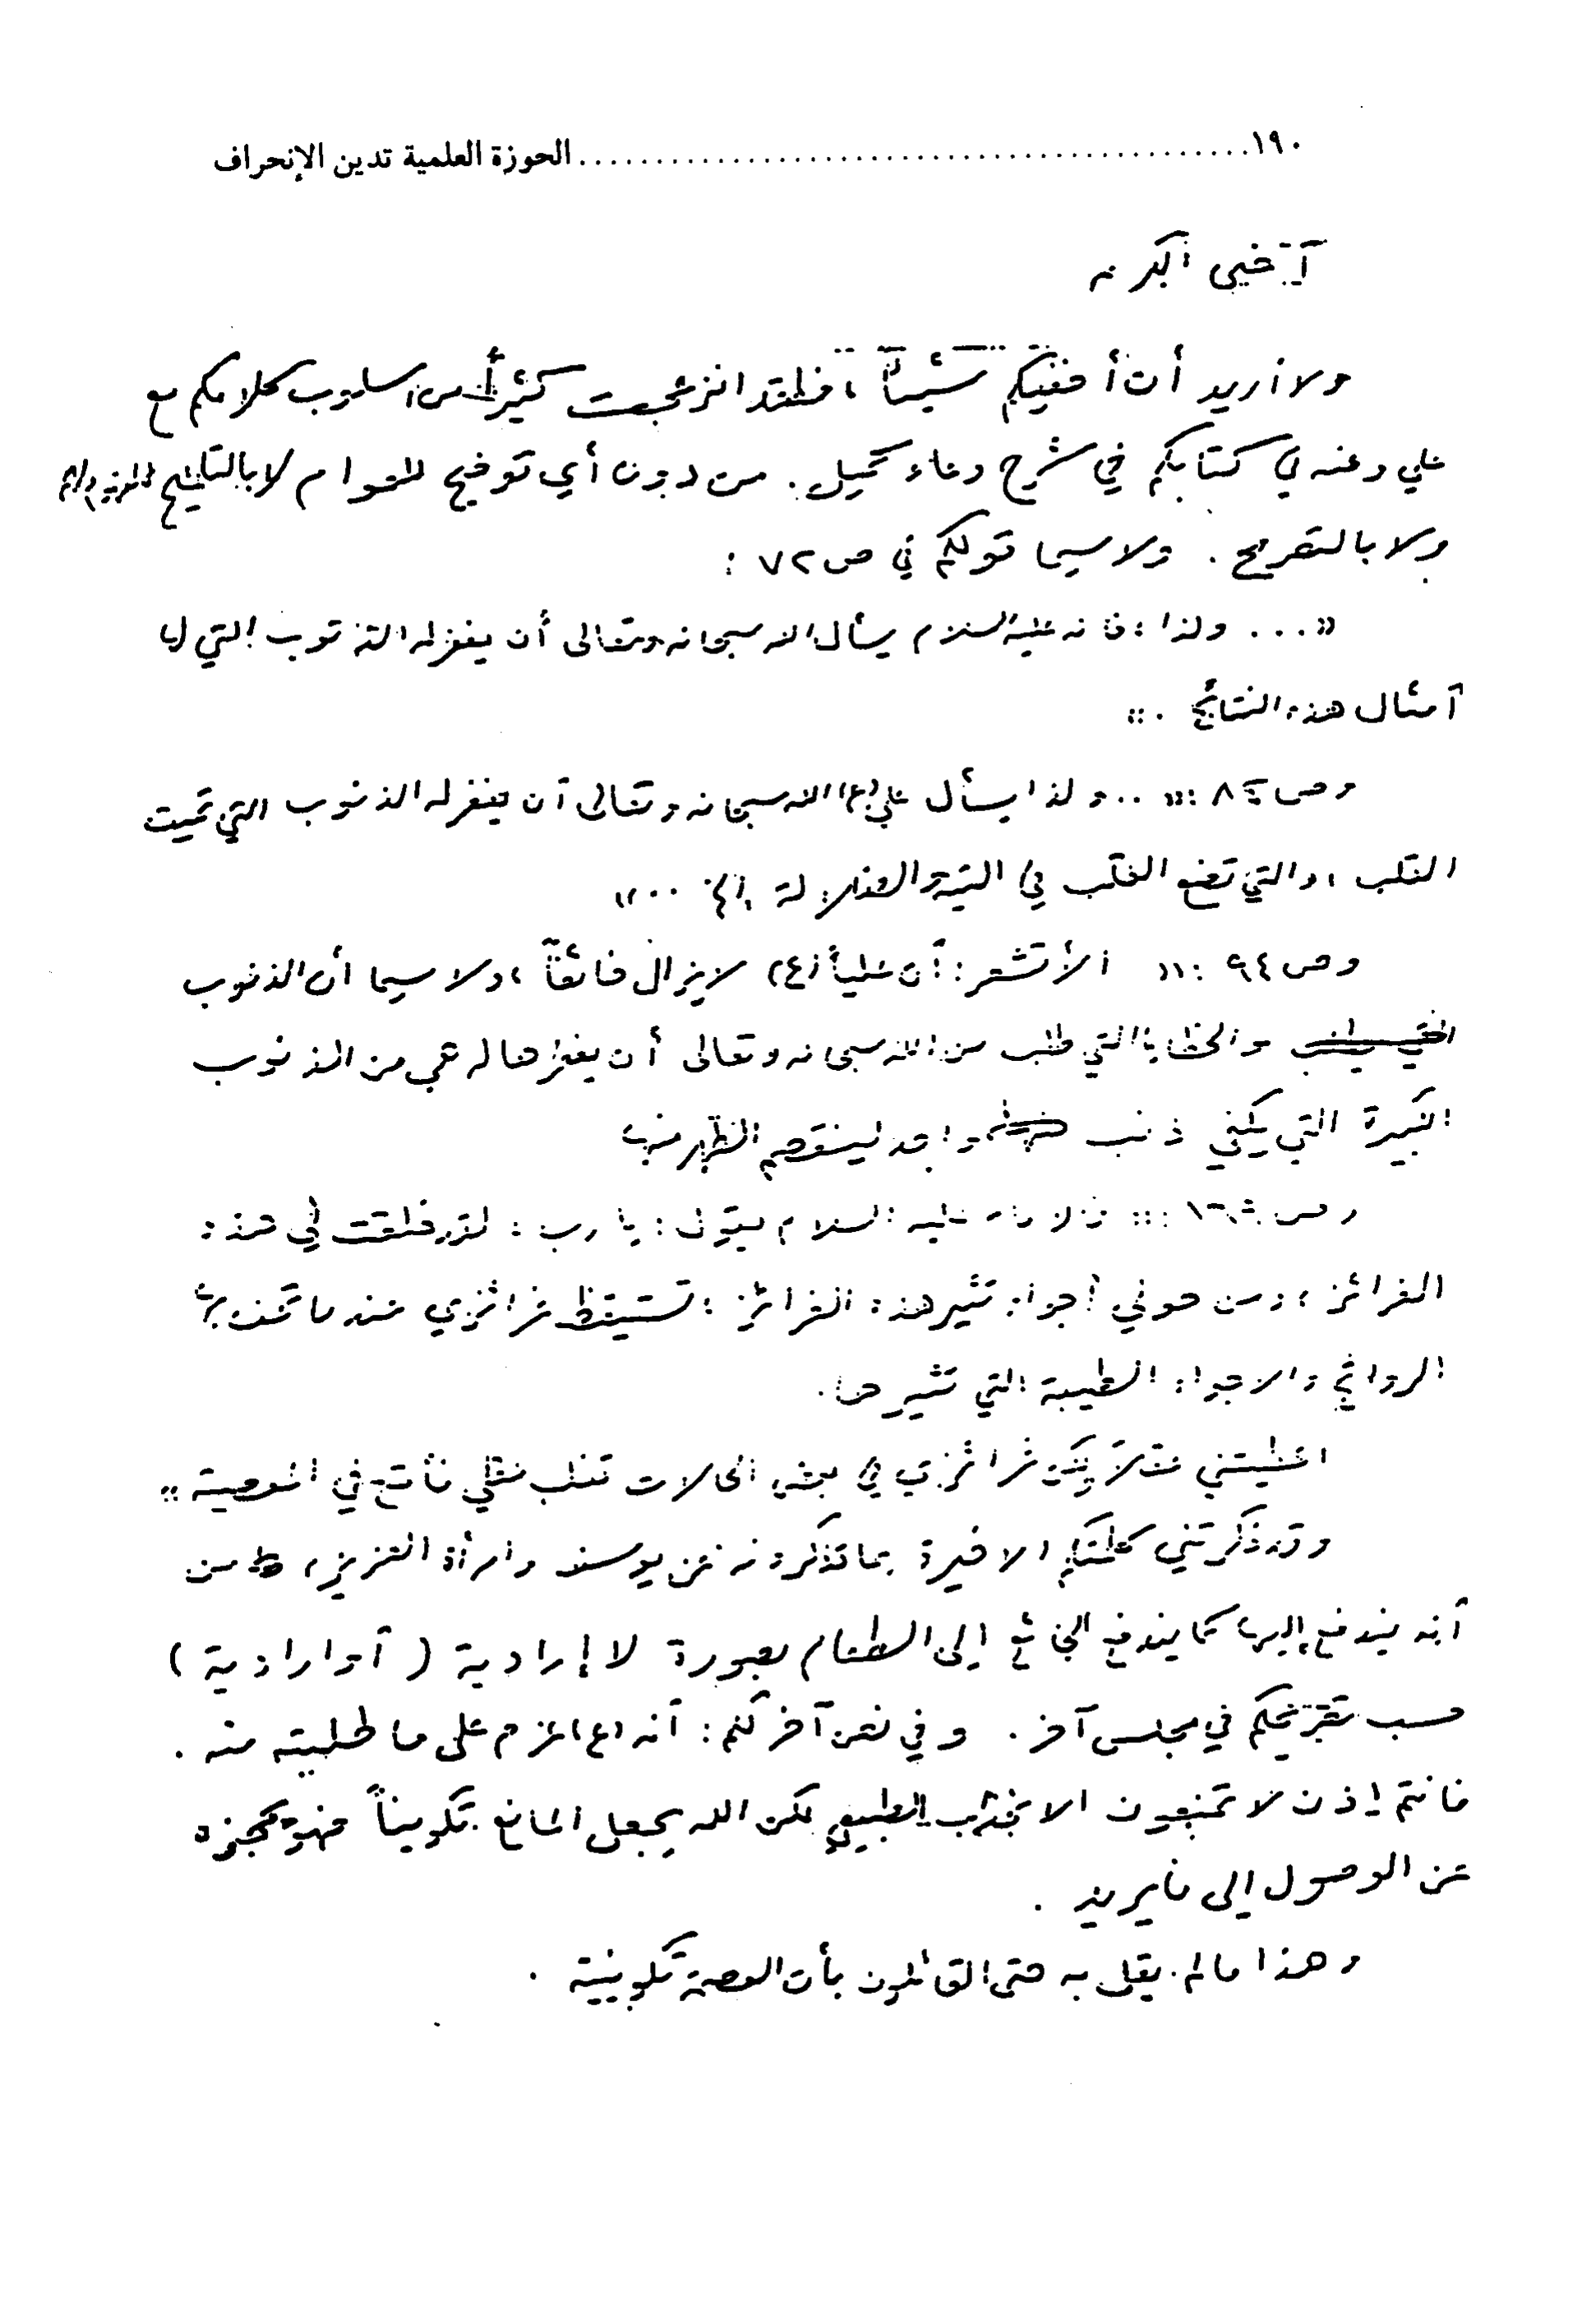 ١٩٠ ........................................... الحوزة العلمية تدين الإنحراف
أخي أكبر
ولا أريد أن أخفيكم شيئاً، فلقد انزعجت كثيراً من اسلوب كلامكم مع
علي وعنه في كتابكم في شرح دعاء كميل. من دون أي توضيح للعوام لا بالتلميح
ولا بالتصريح. ولا سيما قولكم في ص ٧٢ :
«... ولذا، فانه عليه السلام يسأل الله سبحانه وتعالى أن يغفر له الذنوب التي لها
أمثال هذه النتائج.»
وص ٨٤ : «... ولذا يسأل علي (ع) الله سبحانه وتعالى أن يغفر له الذنوب التي تميت
القلب، والتي تضع القلب في التيه والضلالة الخ...»
وص ٩٤ : «الأ تشعر: أن علياً (ع) لا يزال خائفاً، ولا سيما أن الذنوب
والخطايا التي طلب من الله سبحانه وتعالى أن يغفرها له هي من الذنوب
الكبيرة التي يكفي ذنب واحد لينقصم الظهر منها
وص : «فالامام عليه السلام يقول: يا رب: لقد خلقت لي هذه
الغرائز، ومن حولي أجواء تثير هذه الغرائز؛ تستيقظ غرائزي عندما تحف بها
الروائح والاجواء الطيبة التي تثيرها.
اعطيتني عقلاً ولكن غرائزي في بعض الحالات تغلب عقلي فأقع في المعصية»
وقد ذكرتني كلمتكم الاخيرة بما تذكرونه عن يوسف وامرأة العزيز، من
أنه يندفع إليها كما يندفع الجائع إلى الطعام بصورة لا إرادية (أو ارادية)
حسب تقريركم في مجلس آخر. وفي نص آخر لكم: أنه (ع) عزم على ما طلبته منه.
فانتم إذن لا تمنعون الانجذاب الطبيعي لكن الله يجعل المانع تكويناً فهو يحجزه
عن الوصول إلى ما يريد.
وهذا ما لم يقل به حتى القائلون بأن العصمة تكوينية.